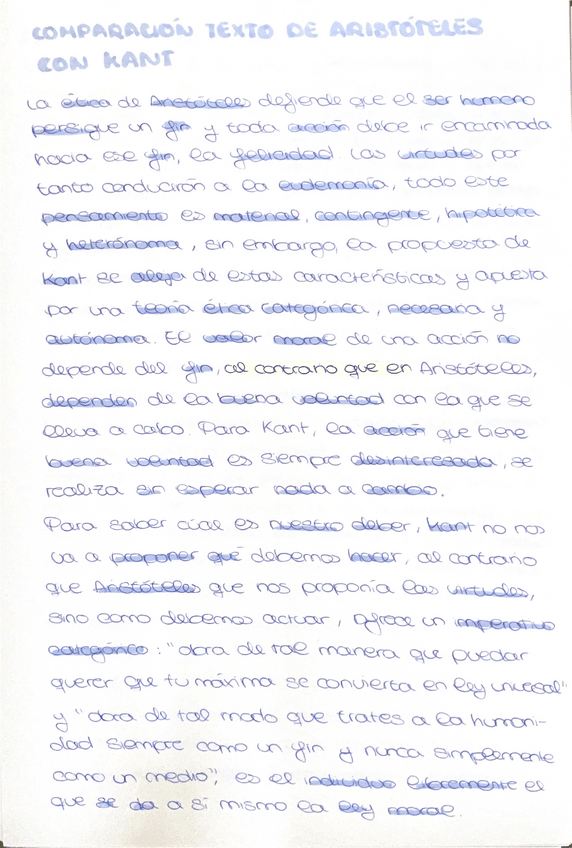 COMPARACIÓN TEXTO DE ARISTÓTELES
CON KANT
La ética de Aristóteles defiende que el ser humano
persigue un fin y toda acción debe ir encaminada
hacia ese fin, la felicidad. Las virtudes por
tanto conducirán a la eudemonía, todo este
pensamiento es material, contingente, hipotética
y heterónoma, sin embargo, la propuesta de
Kant se aleja de estas características y apuesta
por una teoría ética categórica, necesaria y
autónoma. El valor moral de una acción no
depende del fin, al contrario que en Aristóteles,
dependen de la buena voluntad con la que se
lleva a cabo. Para Kant, la acción que tiene
buena voluntad es siempre desinteresada, se
realiza sin esperar nada a cambio.
Para saber cúal es nuestro deber, Kant no nos
va a proponer qué debemos hacer, al contrario
que Aristóteles que nos proponía las virtudes,
sino como debemos actuar, ofrece un imperativo
categórico: "obra de tal manera que puedar
querer que tu máxima se convierta en ley universal"
y "obra de tal modo que trates a la humani-
dad siempre como un fin y nunca simplemente
como un medio", es el individuo libremente el
que se da a sí mismo la ley moral.